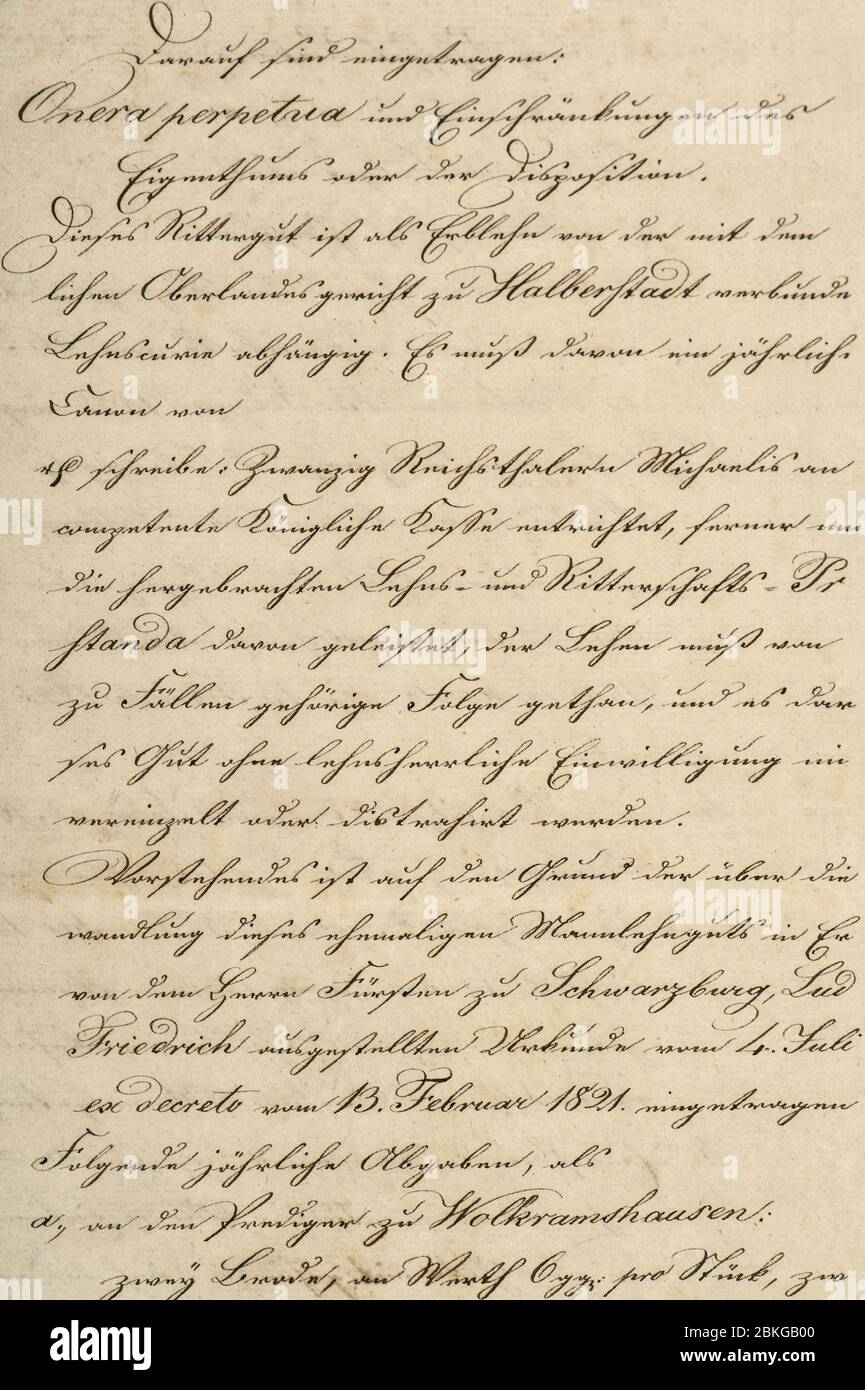 Darauf sind eingetragen:
Onera perpetua und Einschränkungen des
Eigenthums oder der Disposition.
Dieses Rittergut ist als Erblehn von der mit dem
lichen Oberlandesgericht zu Halberstadt verbunde
Lehnscurie abhängig. Es muß davon ein jährlich
Canon von
schreibe: Zwanzig Reichsthalern Michaelis an
competente Königliche Kasse entrichtet, ferner
die hergebrachten Lehns- und Ritterschafts-Pr
standa davon geleistet, der Lehen muß von
zu Fällen gehörige Folge gethan, und es dar
ses Gut ohne lehnsherrliche Einwilligung
vereinzelt oder distrahirt werden.
Vorstehendes ist auf den Grund der über die
wandlung dieses ehemaligen Mannlehnguts in Er
von dem Herrn Fürsten zu Schwarzburg, Lud
Friedrich ausgestellten Urkunde vom 4. Juli
ex decreto vom 13. Februar 1821. eingetragen
Folgende jährliche Abgaben, als
a., an den Prediger zu Wolkramshausen:
zwey Brode, an Werth 6 ggr: pro Stück, zw
alamy
Image ID: 2BKGB00
www.alamy.com